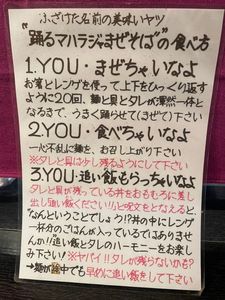 ふざけた名前の美味いヤツ
"踊るマハラジャまぜそば"の食べ方
1.YOU・まぜちゃいなよ
お箸とレンゲを使って上下をひっくり返す
ように20回、麺と具とタレが渾然一体と
なるまで、うきく踊らせて(まぜて)下さい
2.YOU・食べちゃいなよ
一心不乱に麺を、お召し上がり下さい
※タレと具は少し残るようにして下さい
3.YOU・追い飯もらっちゃいなよ
タレと具が残っている丼をおもむろに差
し出し追い飯ください!!と呪文をとなえると、
なんということでしょう!?丼の中にレンゲ
一杯分のごはんが入っているではありませ
んか!!追い飯とタレのハーモニーをお楽し
み下さい!※ヤバイ!!タレが残らないかも?
→麺が途中でも早めに追い飯をして下さい